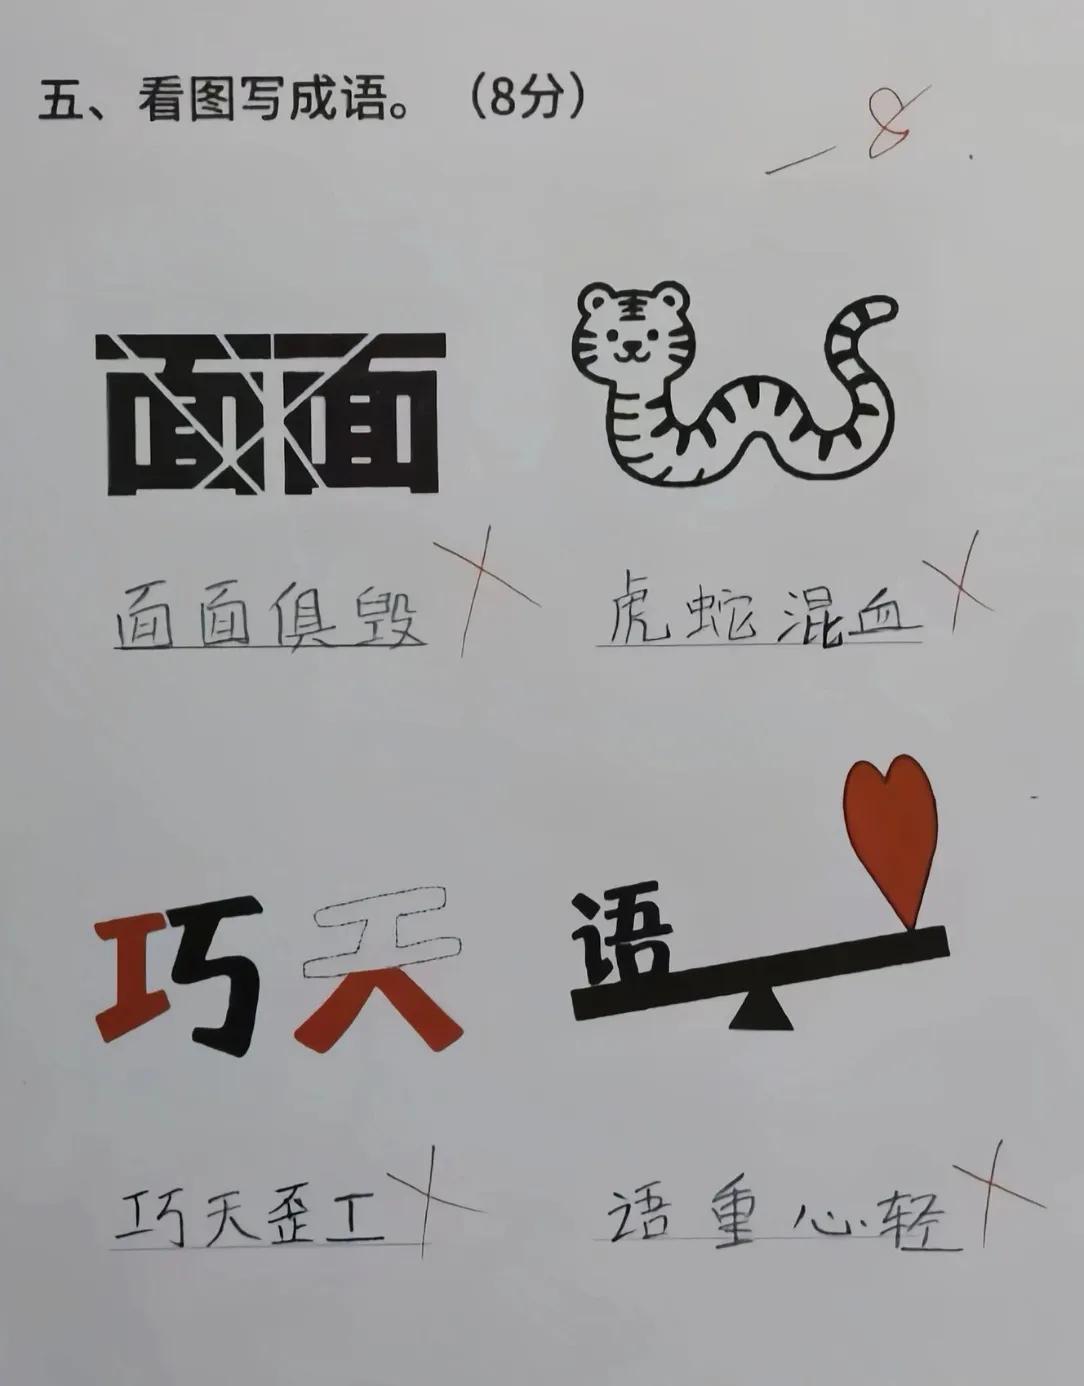 五、看图写成语。（8分）
-8
面面
面面俱毁
虎蛇混血
巧天
语
巧天歪工
语重心轻